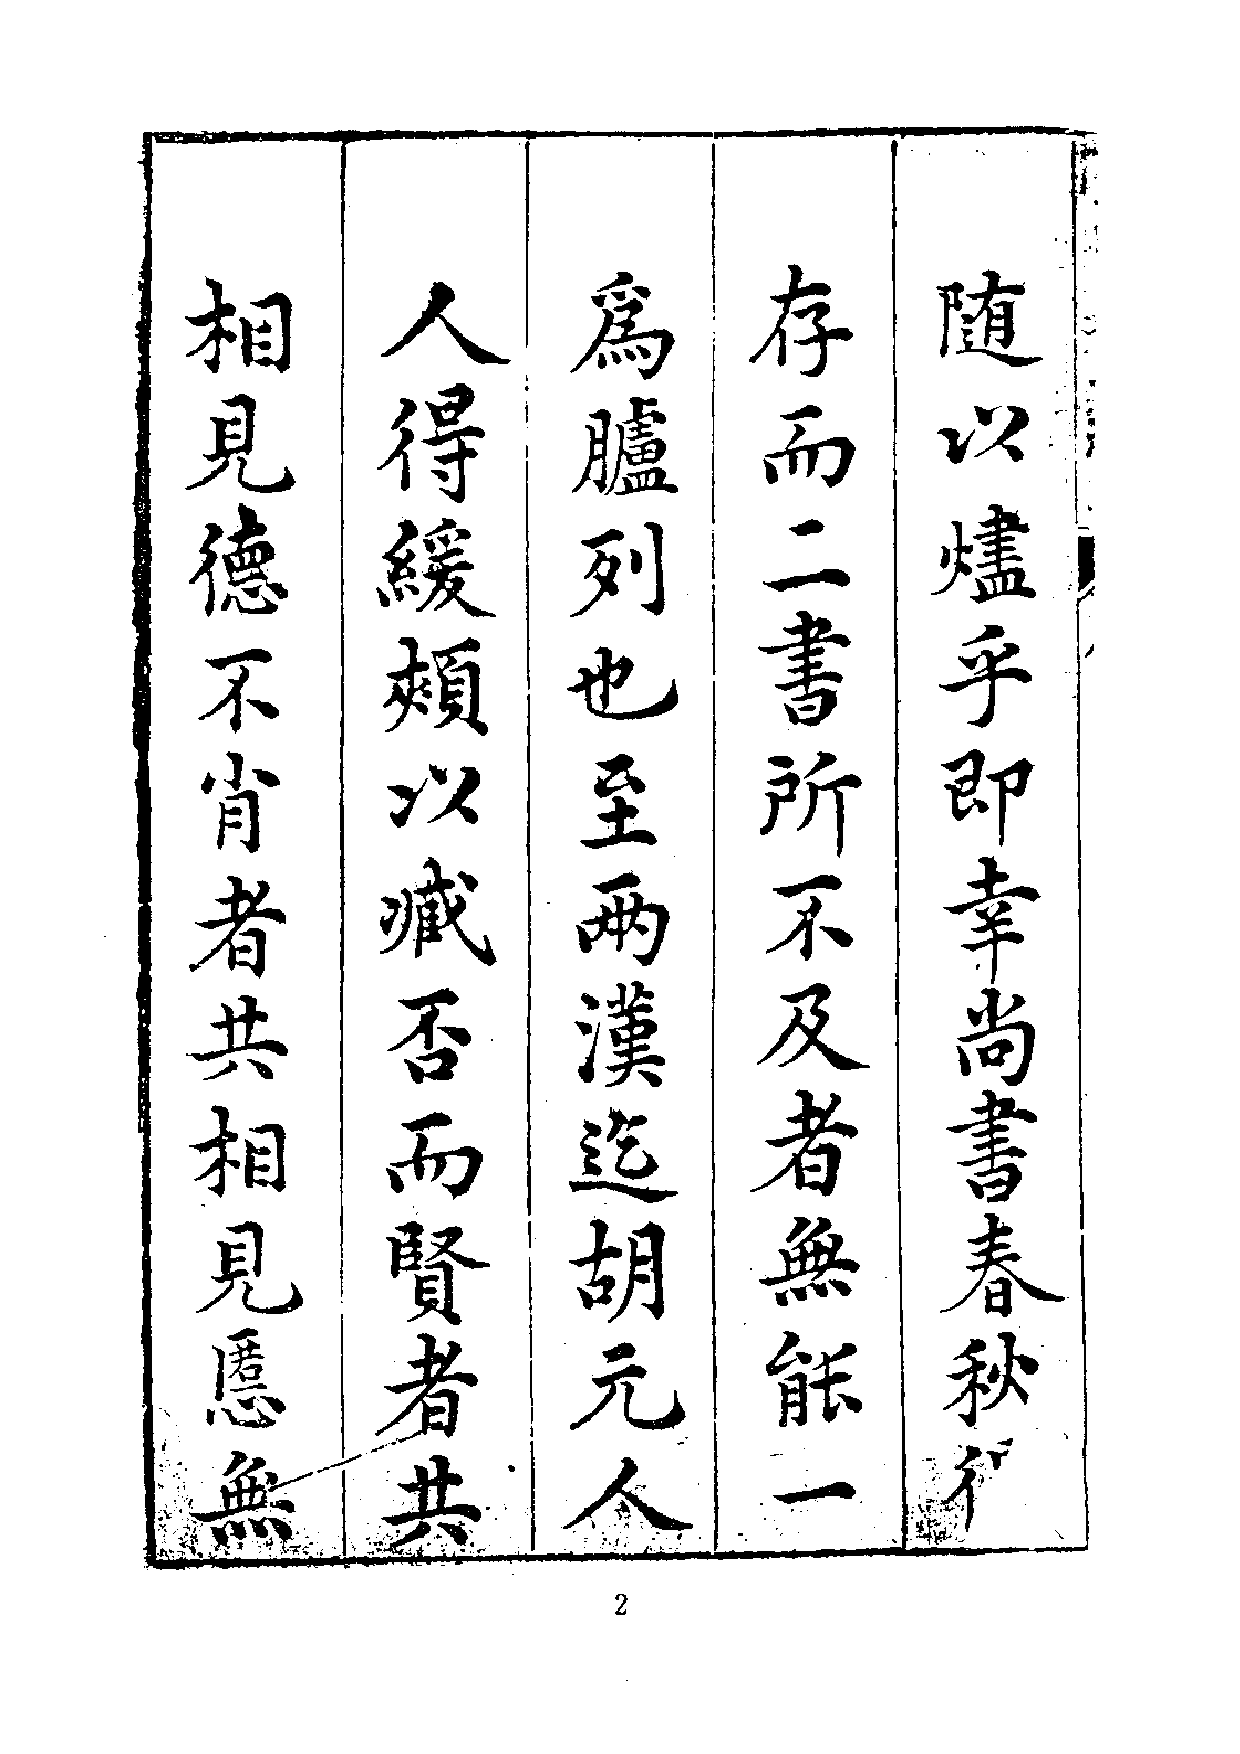 随以燼乎即幸尚書春秋
存而二書所不及者無能一
爲臚列也至兩漢迄胡元人
人得緩頰以臧否而賢者共
相見德不肖者共相見慝無
2